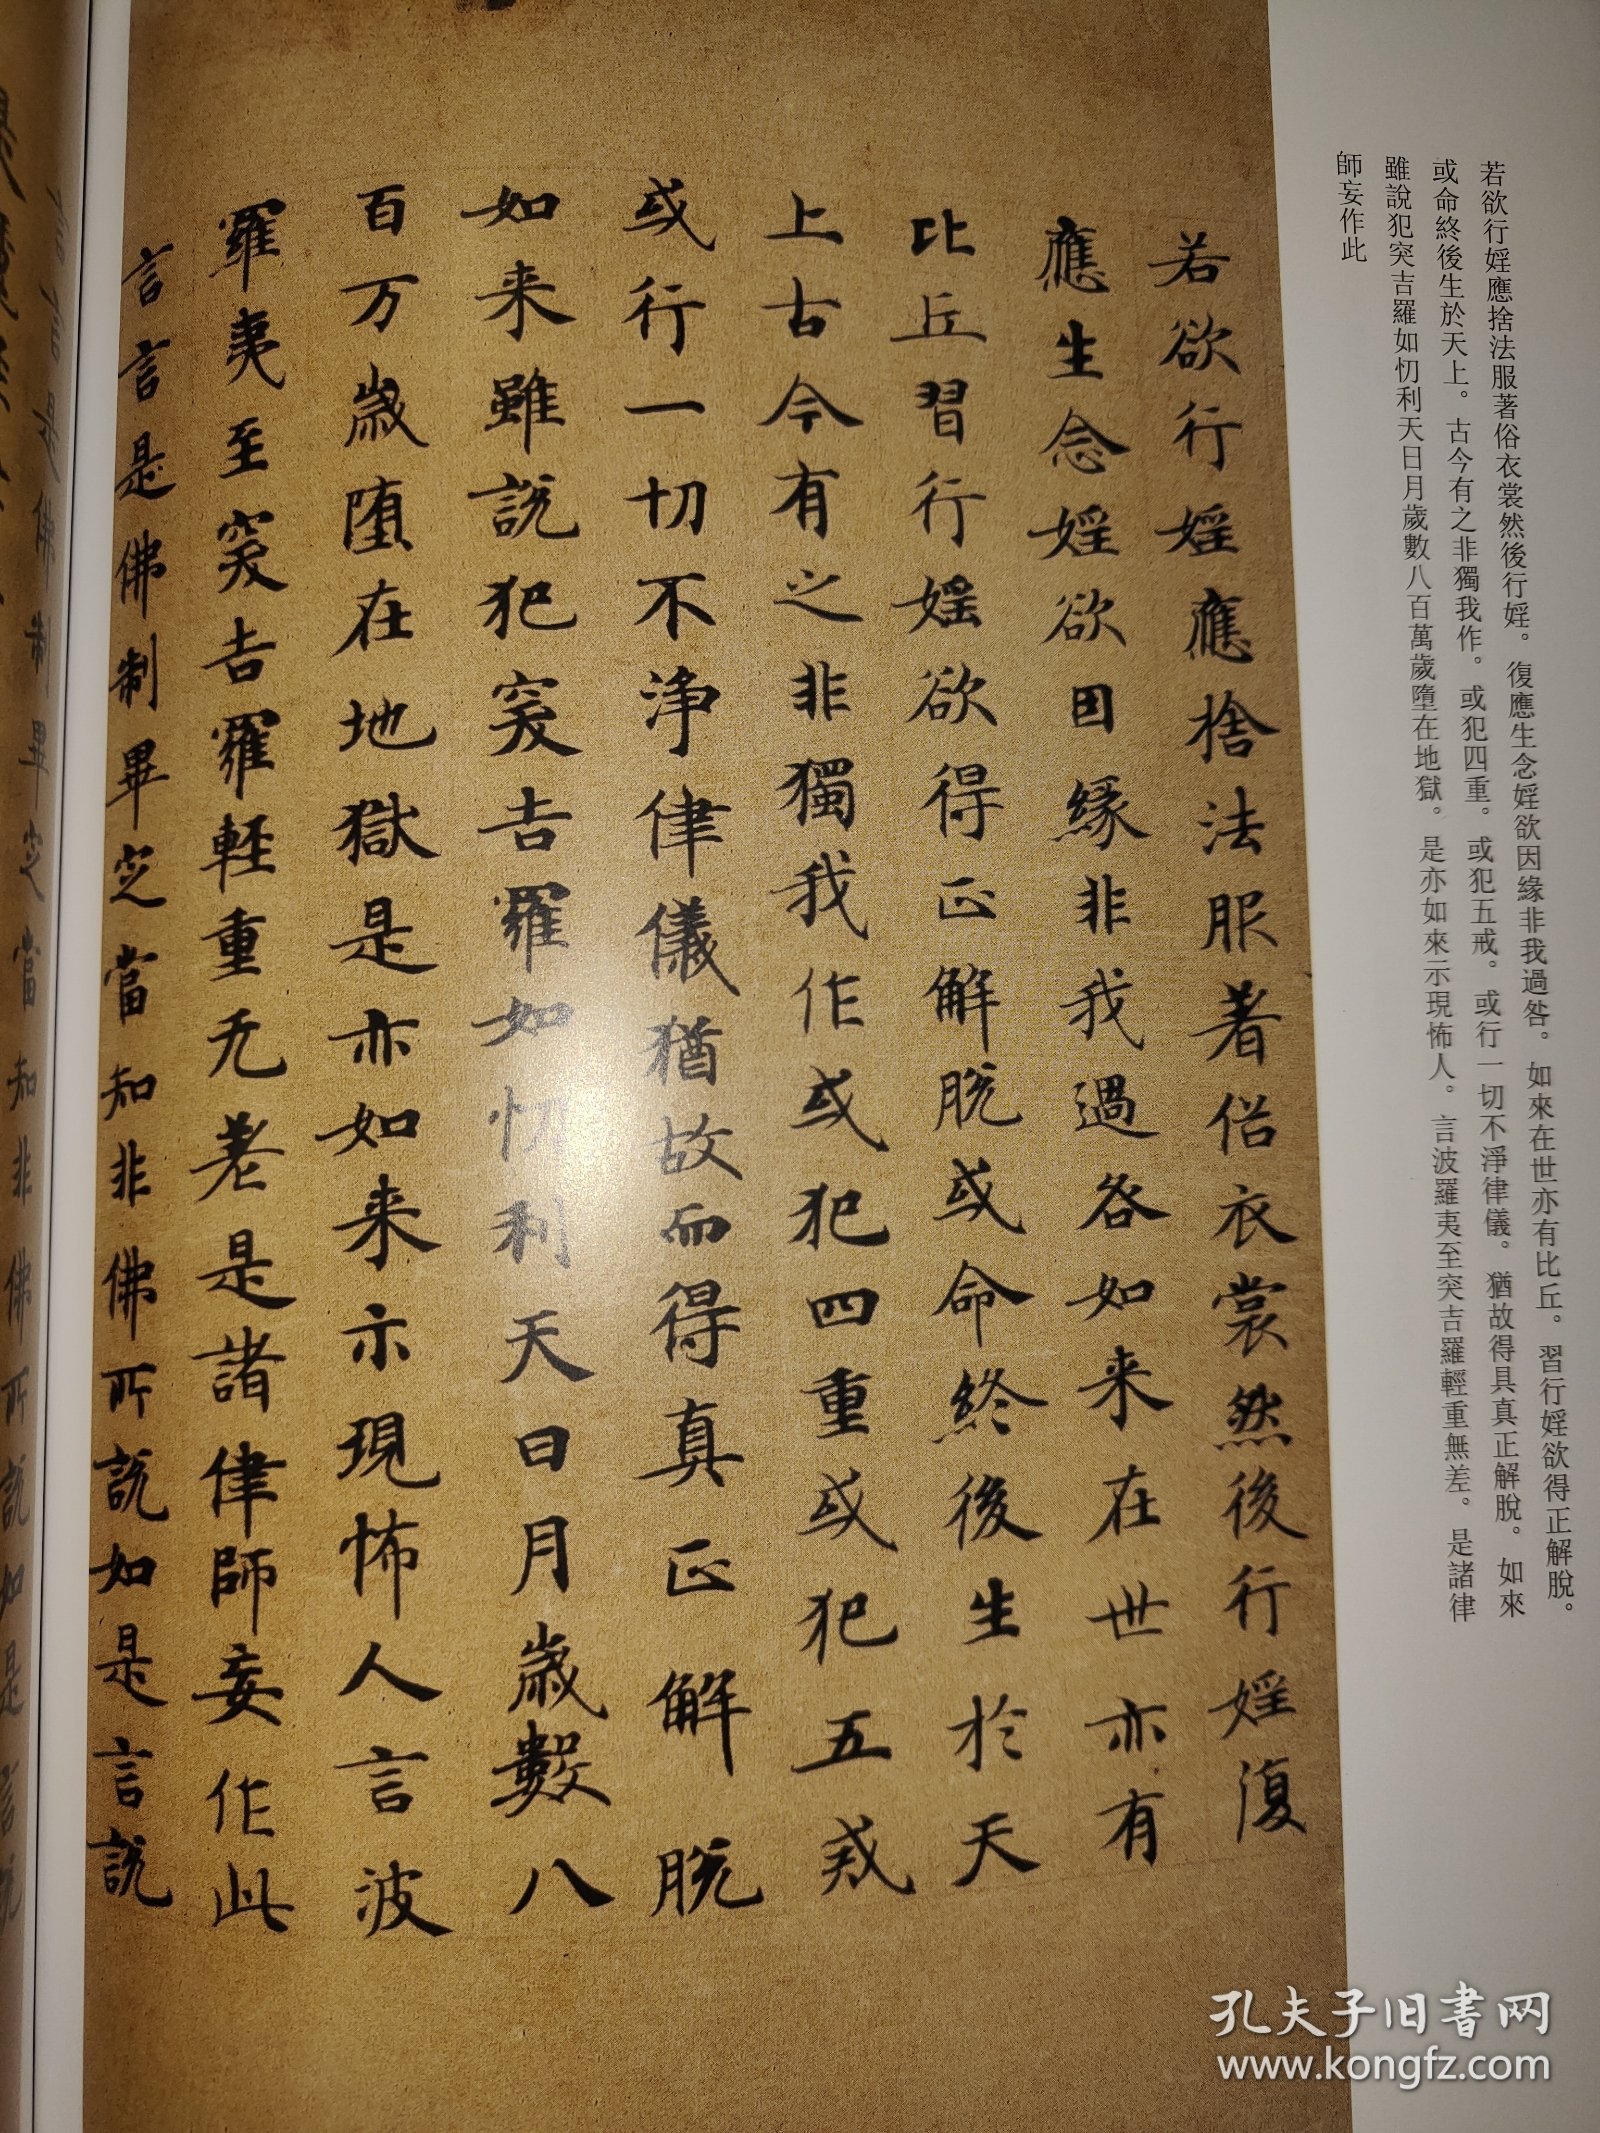 若欲行婬應捨法服著俗衣裳然後行婬。復應生念婬欲因緣非我過咎。如來在世亦有比丘。習行婬欲得正解脫。
或命終後生於天上。古今有之非獨我作。或犯四重。或犯五戒。或行一切不淨律儀。猶故得具真正解脫。如來
雖說犯突吉羅如忉利天日月歲數八百萬歲墮在地獄。是亦如來示現怖人。言波羅夷至突吉羅輕重無差。是諸律
師妄作此
若欲行婬應捨法服著俗衣裳然後行婬復
應生念婬欲因緣非我過咎如来在世亦有
比丘習行婬欲得正解脫或命終後生於天
上古今有之非獨我作或犯四重或犯五戒
或行一切不淨律儀猶故而得真正解脫
如来雖說犯突吉羅如忉利天日月歲數八
百万歲墮在地獄是亦如来示現怖人言波
羅夷至突吉羅輕重无差是諸律師妄作此
言言是佛制畢定當知非佛所說如是言說
言言是佛制畢定當知非佛所說如是言說
孔夫子旧书网
www.kongfz.com